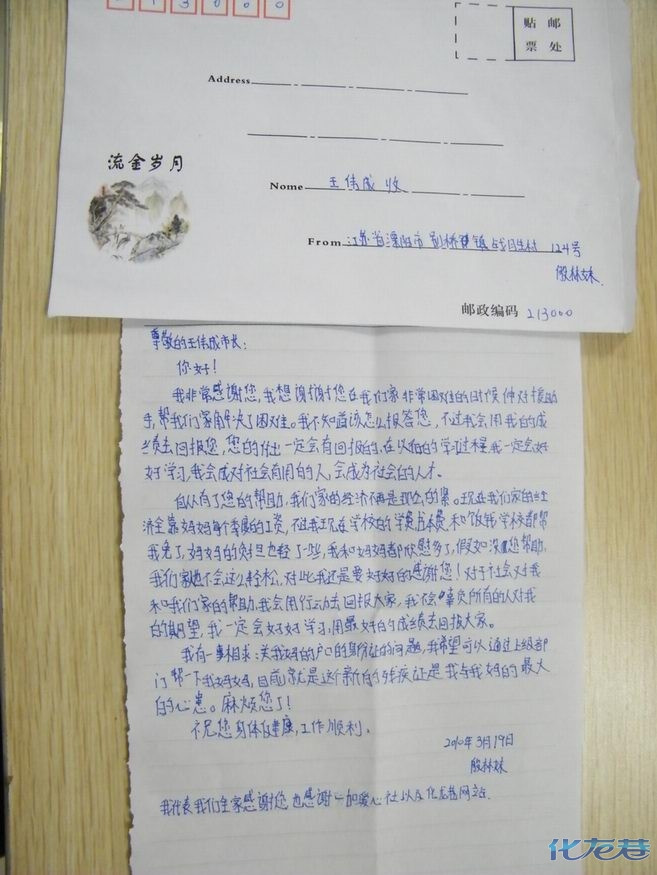 213000
贴 邮
票 处
Address
流金岁月
Nome 王伟成 收
From 江苏省溧阳市别桥镇 村 124号
殷林妹
邮政编码 213000
尊敬的王伟成市长:
你好!
我非常感谢您,我想谢谢您在我们家非常困难的时候伸对援助
手,帮我们家解决了困难。我不知道该怎么报答您,不过我会用我的成
绩去回报您,您的付出一定会有回报的,在以后的学习过程我一定会好
好学习,我会成对社会有用的人,会成为社会的人才。
自从有了您的帮助,我们家的经济不再是现在的累。现在我们家的经
济全靠妈妈每个季度的工资,不过我现在学校的学费书本费和饭钱学校都帮
我免了,妈妈的负担也轻了一些,我和妈妈都欣慰多了,假如没有您帮助,
我们家也不会这么轻松,对此我还是要好好的感谢您!对于社会对我
和我们家的帮助,我会用行动去回报大家,我不会辜负所有的人对我
的期望,我一定会好好学习,用最好的成绩去回报大家。
我有一事相求:关我妈的户口的身份证的问题,我希望可以通过上级部
门帮一下我妈妈,目前就是这个新的残疾证是我与我妈的最大
的心患。麻烦您了!
祝您身体健康,工作顺利。
2010年3月19日
殷林妹
我代表我们全家感谢您也感谢一加爱心社以及化龙巷网站.
化龙巷